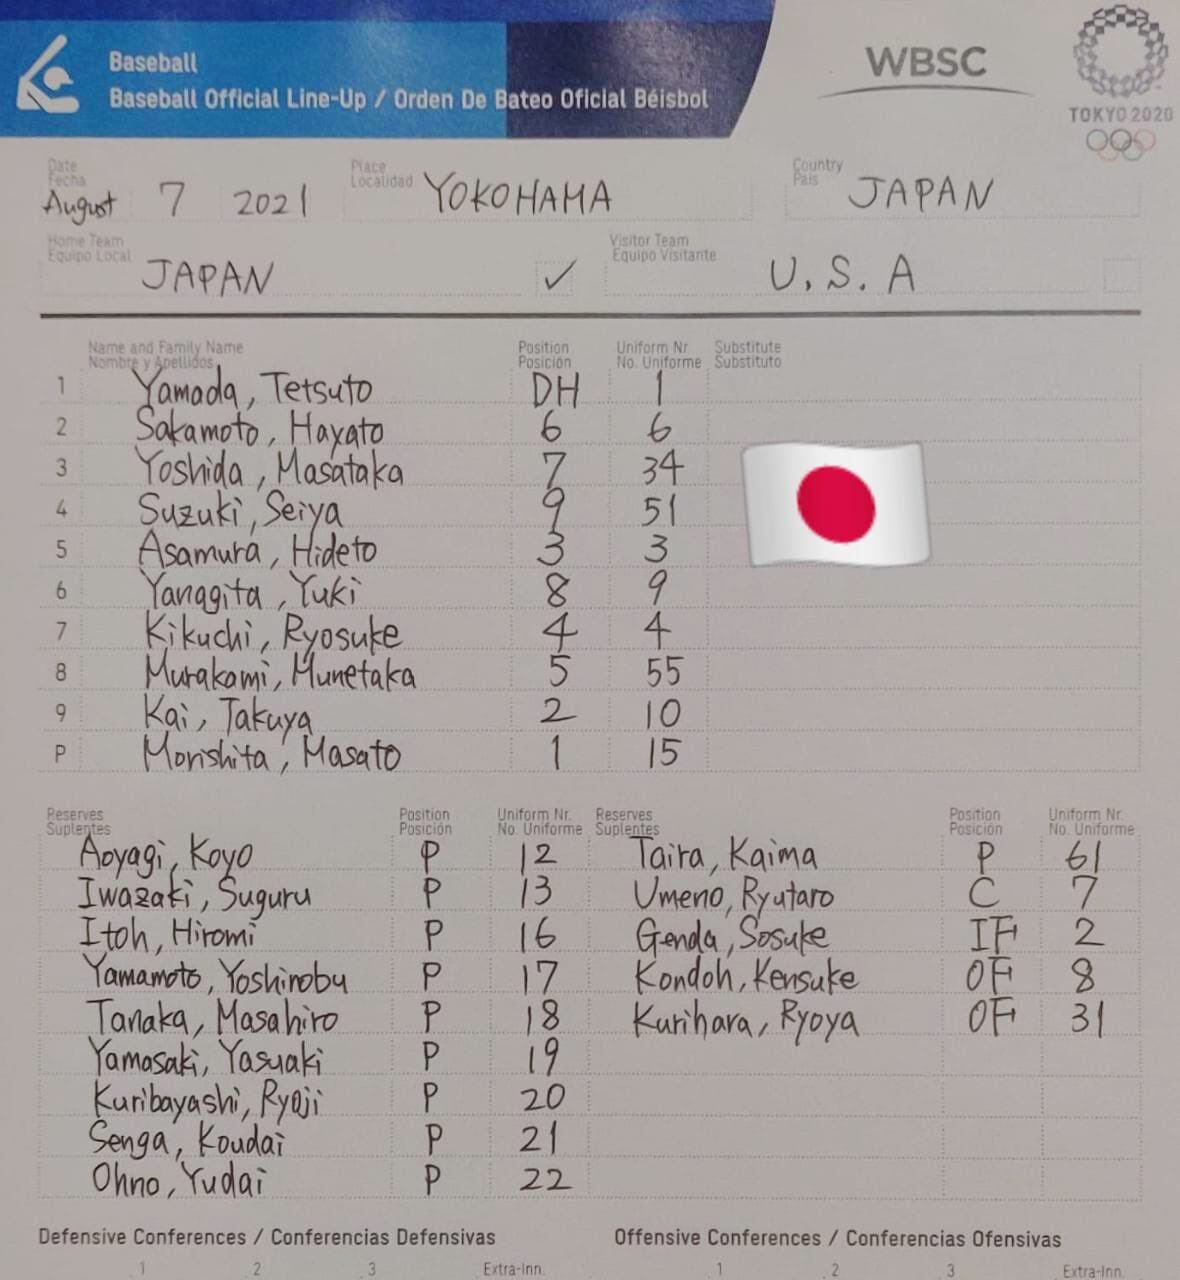 Baseball
Baseball Official Line-Up / Orden De Bateo Oficial Béisbol
WBSC
TOKYO 2020
Date Fecha August 7 2021 Place Localidad YOKOHAMA Country País JAPAN
Home Team Equipo Local JAPAN ✓ Visitor Team Equipo Visitante U.S.A
Name and Family Name Position Uniform Nr Substitute
Nombre y Apellidos Posición No. Uniforme Substituto
1 Yamada, Tetsuto DH 1
2 Sakamoto, Hayato 6 6
3 Yoshida, Masataka 7 34
4 Suzuki, Seiya 9 51
5 Asamura, Hideto 3 3
6 Yanagita, Yuki 8 9
7 Kikuchi, Ryosuke 4 4
8 Murakami, Munetaka 5 55
9 Kai, Takuya 2 10
P Morishita, Masato 1 15
Reserves Position Uniform Nr. Reserves Position Uniform Nr.
Suplentes Posición No. Uniforme Suplentes Posición No. Uniforme
Aoyagi, Koyo P 12 Taira, Kaima P 61
Iwazaki, Suguru P 13 Umeno, Ryutaro C 7
Itoh, Hiromi P 16 Genda, Sosuke IF 2
Yamamoto, Yoshinobu P 17 Kondoh, Kensuke OF 8
Tanaka, Masahiro P 18 Kurihara, Ryoya OF 31
Yamasaki, Yasuaki P 19
Kuribayashi, Ryoji P 20
Senga, Koudai P 21
Ohno, Yudai P 22
Defensive Conferences / Conferencias Defensivas Offensive Conferences / Conferencias Ofensivas
1 2 3 Extra-Inn. 1 2 3 Extra-Inn.